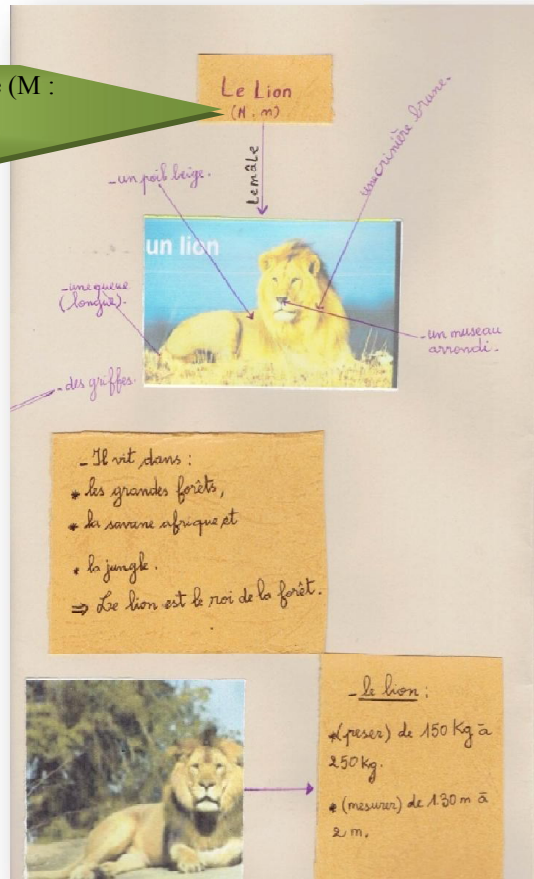 (M :
Le Lion
(N.m)
Le mâle
une crinière brune.
- un poil beige.
un lion
- une queue
(longue).
- un museau
arrondi.
- des griffes.
- Il vit dans :
* les grandes forêts,
* la savane afrique et
* la jungle.
⇒ Le lion est le roi de la forêt.
- le lion :
* (peser) de 150 Kg à
250 Kg.
* (mesurer) de 1.30 m à
2 m.